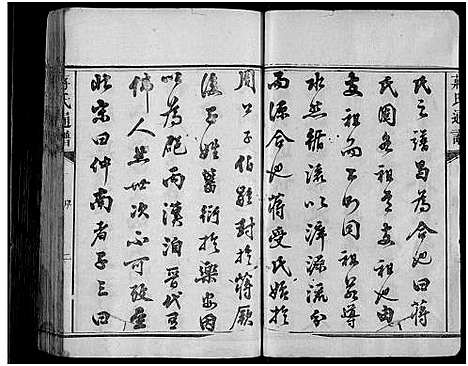 蒋氏通譜
氏之譜曷為合也曰蒋
氏固各祖其支祖也由
支祖而上則同祖蓋導
水然循流以溯源流分
而源合也蒋受氏始於
周公子伯齡封於蒋厥
後子姓蕃衍於樂安因
以為郡兩漢洎晉代有
偉人然世次不可殚
北宋曰仲南者子三曰
蒋氏通譜
序
二